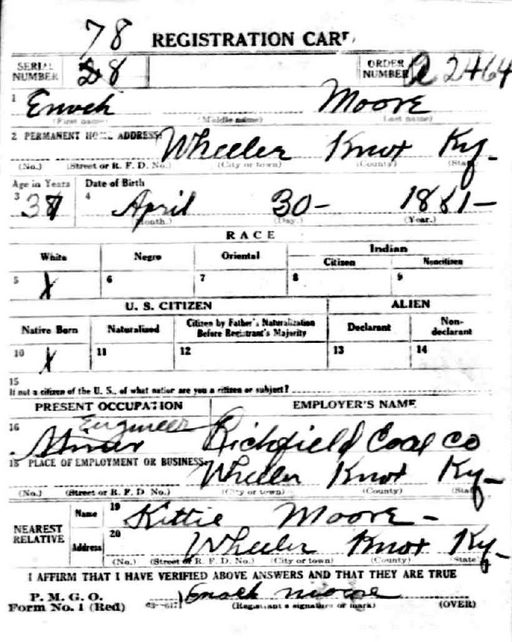 78 REGISTRATION CARD
SERIAL NUMBER 28 ORDER NUMBER A 2464
1 Enoch Moore
(First name) (Middle name) (Last name)
2 PERMANENT HOME ADDRESS: Wheeler Knox Ky-
(No.) (Street or R. F. D. No.) (City or town) (County) (State)
Age in Years Date of Birth
3 37 4 April 30- 1881-
(Month.) (Day.) (Year.)
RACE
White Negro Oriental Indian
Citizen Noncitizen
5 X 6 7 8 9
U. S. CITIZEN ALIEN
Native Born Naturalized Citizen by Father's Naturalization Before Registrant's Majority Declarant Non-declarant
10 X 11 12 13 14
15
If not a citizen of the U. S., of what nation are you a citizen or subject?
PRESENT OCCUPATION EMPLOYER'S NAME
16 Engineer Richfield Coal Co
18 PLACE OF EMPLOYMENT OR BUSINESS: Wheeler Knox Ky-
(No.) (Street or R. F. D. No.) (City or town) (County) (State)
NEAREST RELATIVE Name 19 Kittie Moore-
Address 20 Wheeler Knox Ky-
(No.) (Street or R. F. D. No.) (City or town) (County) (State)
I AFFIRM THAT I HAVE VERIFIED ABOVE ANSWERS AND THAT THEY ARE TRUE
P. M. G. O.
Form No. 1 (Red) Enoch Moore
(Registrant's signature or mark) (OVER)